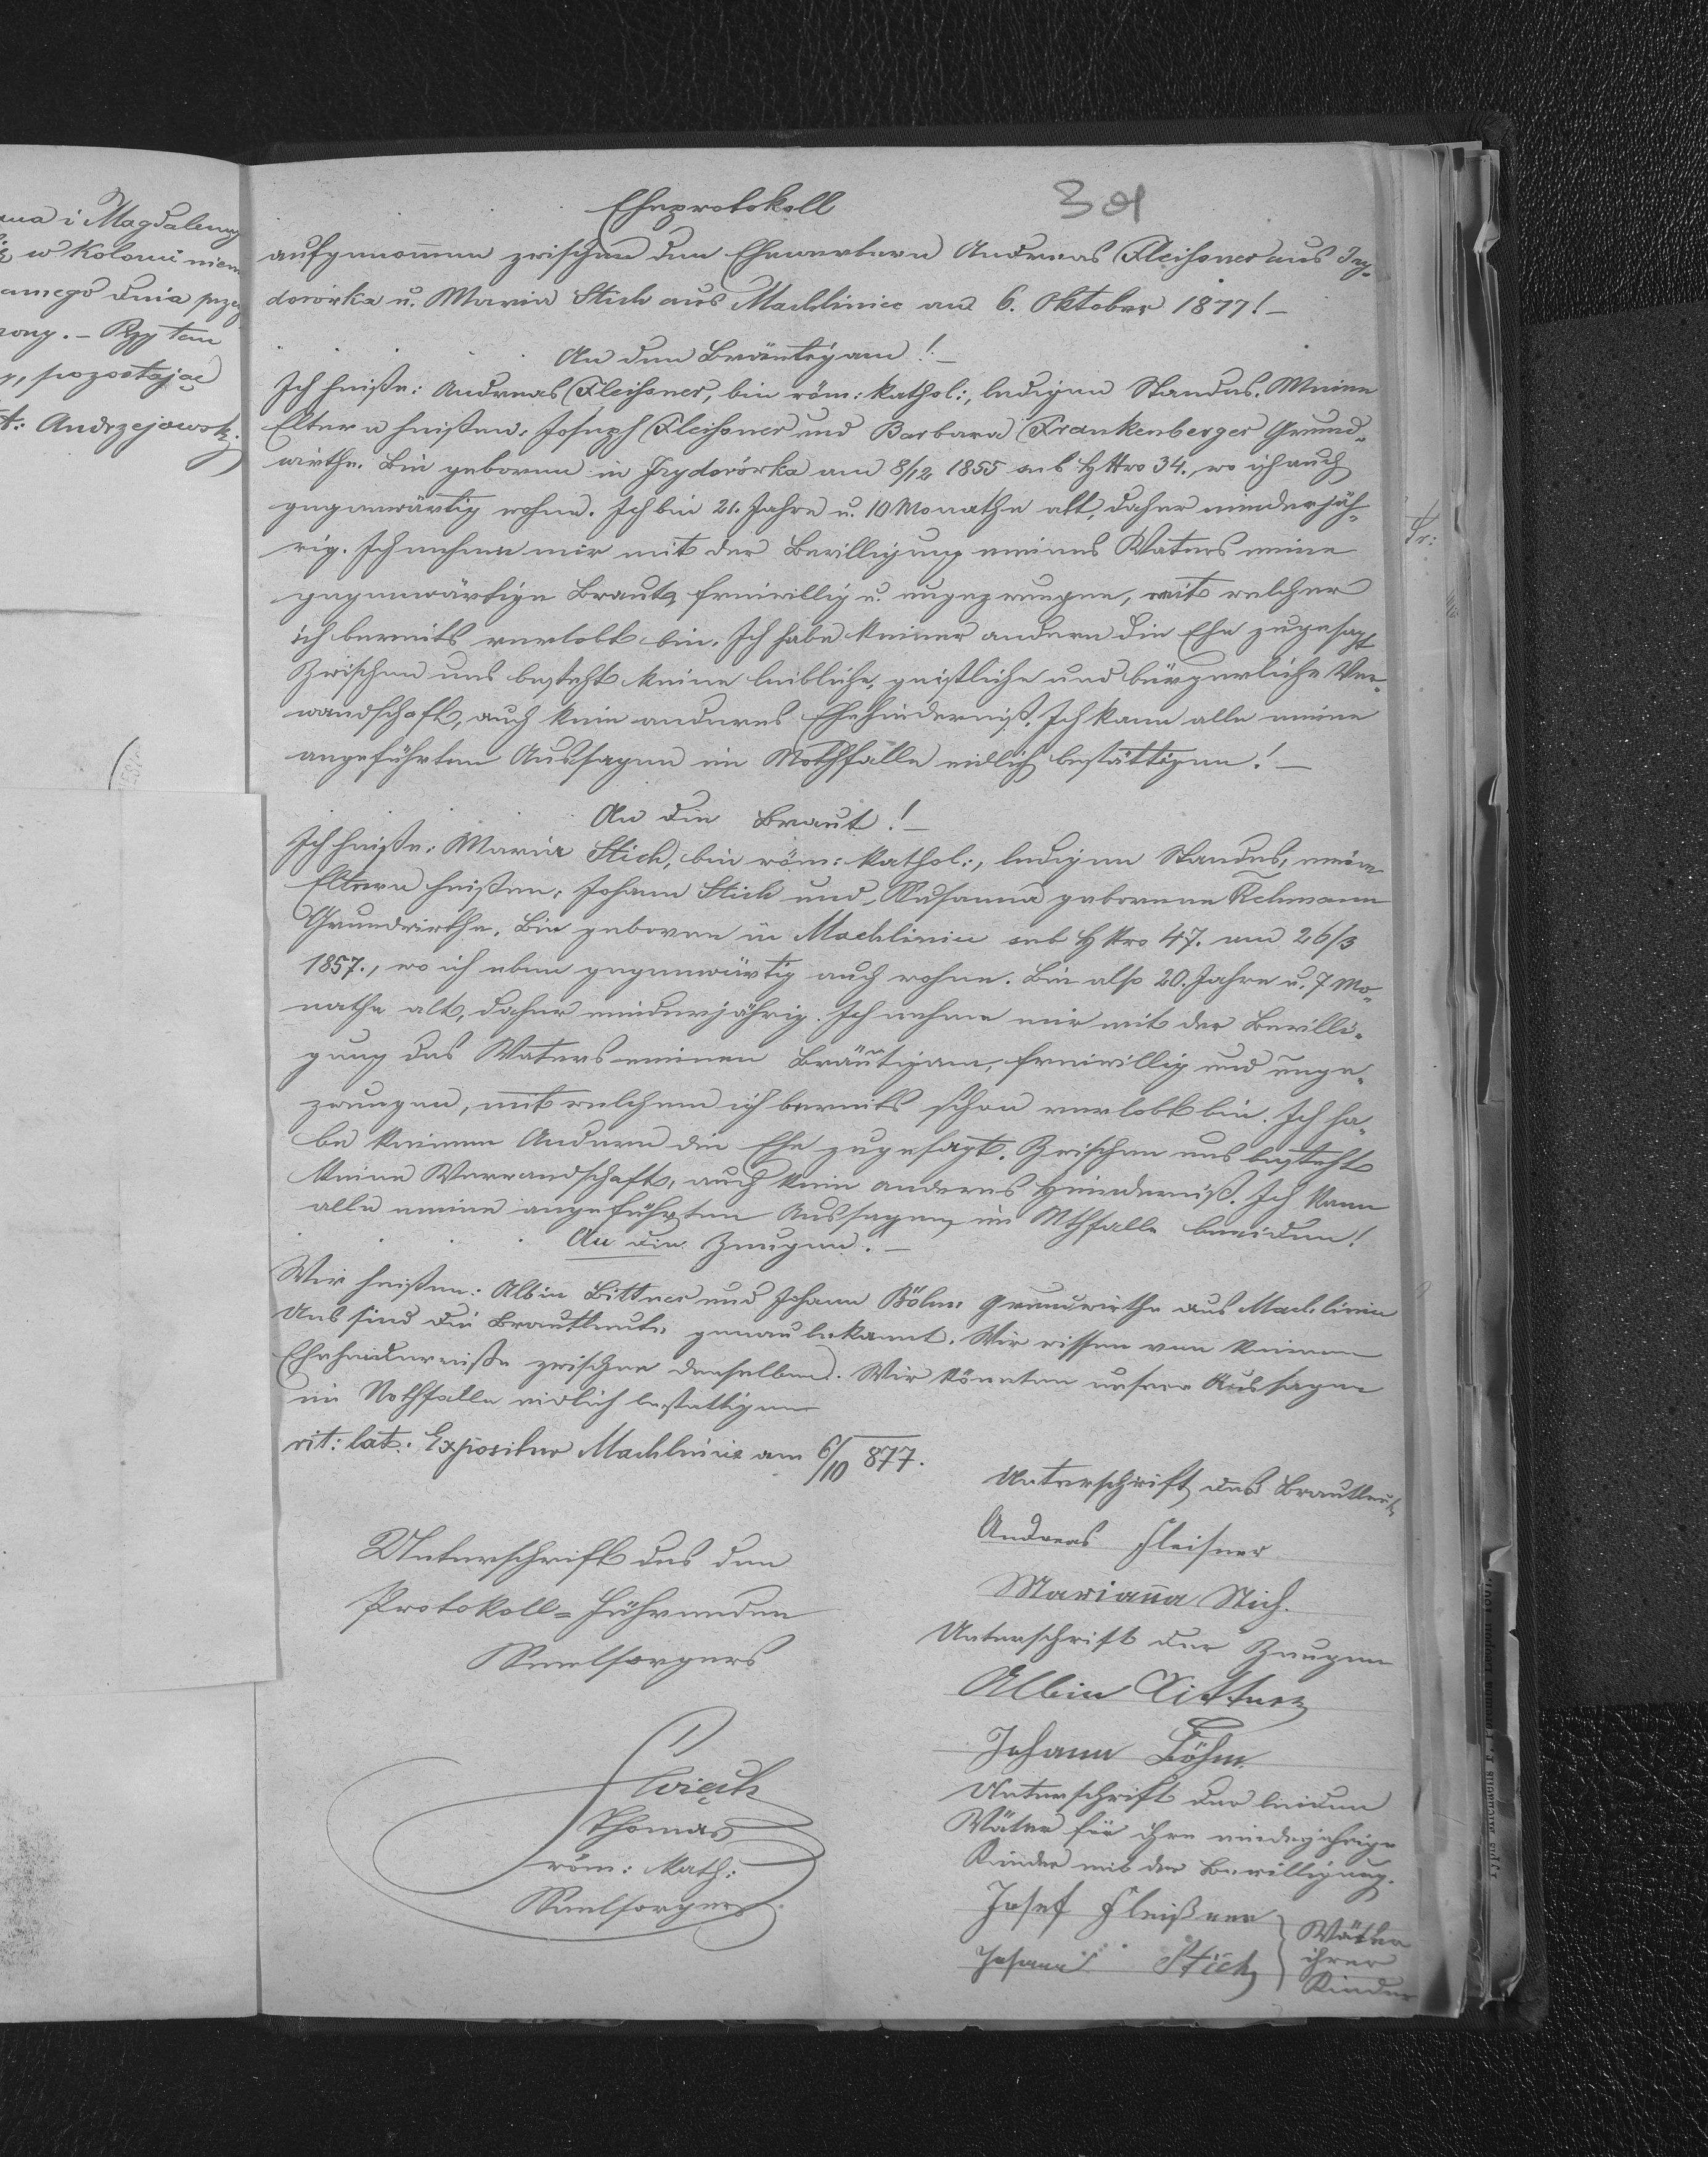 ma i Magdaleny
w Kolonii niem
amego dnia prze
rony. - Przy tem
y, pozostając
t: Andrzejowsk.
301
Eheprotokoll
aufgenommen zwischen den Ehewerbern Andreas Fleihsner aus Izy-
dorówka u. Maria Stich aus Machliniec am 6. Oktober 1877! -
An den Bräutigam! -
Ich heiße: Andreas Fleihsner, bin röm: kathol:, ledigen Standes. Meine
Eltern heißen: Joseph Fleihsner und Barbara Frankenberger Grund-
wirthe. Bin geboren in Izydorórka am 8/12 1855 sub HNro 34., wo ich auch
gegenwärtig wohne. Ich bin 21. Jahre u. 10 Monathe alt, daher minderjäh-
rig. Ich nehme mir mit der Bewilligung meines Vaters meine
gegenwärtige Braut, freiwillig u. ungezwungen, mit welcher
ich bereits verlobt bin. Ich habe keiner andern die Ehe zugesagt
Zwischen uns besteht keine leibliche, geistliche und bürgerliche Ver-
wandschaft, auch kein anderes Ehehinderniß. Ich kann alle meine
angeführten Aussagen im Nothfalle eidlich bestättigen! -
An die Braut! -
Ich heiße: Maria Stich, bin röm: kathol:, ledigen Standes, meine
Eltern heißen: Johann Stich und Susanna geborene Rehmann
Grundwirthe. Bin geboren in Machliniec sub HNro 47. am 26/3
1857., wo ich eben gegenwärtig auch wohne. Bin also 20. Jahre u. 7 Mo-
nathe alt, daher minderjährig. Ich nehme mir mit der Bewilli-
gung des Vaters meinen Bräutigam, freiwillig und unge-
zwungen, mit welchem ich bereits schon verlobt bin. Ich ha-
be keinem Andern die Ehe zugesagt. Zwischen uns besteht
keine Verwandschaft, auch kein anderes Hinderniß. Ich kann
alle meine angeführten Aussagen im Nthfalle beeiden!
An die Zeugen. -
Wir heißen: Albin Bittner und Johann Böhm Grundwirthe aus Machliniec
Uns sind die Brautleute genau bekannt. Wir wissen von keinem
Ehehinderniße zwischen denselben. Wir könnten unsere Aussagen
im Nothfalle eidlich bestättigen
rit: lat: Expositur Machliniec am 6/10 877.
Unterschrift des den
Protokoll=führenden
Seelsorgers
Thomas
röm: Kath:
Seelsorger
Unterschrift des Brautleute
Andreas Fleisner
Marianna Stich.
Unterschrift der Zeugen
Albin Bittner
Johann Böhm.
Unterschrift der beiden
Väter für ihre minderjährige
Kinder mit der Bewilligung.
Josef Fleißner
Johann Stich
Väter
ihrer
Kinder